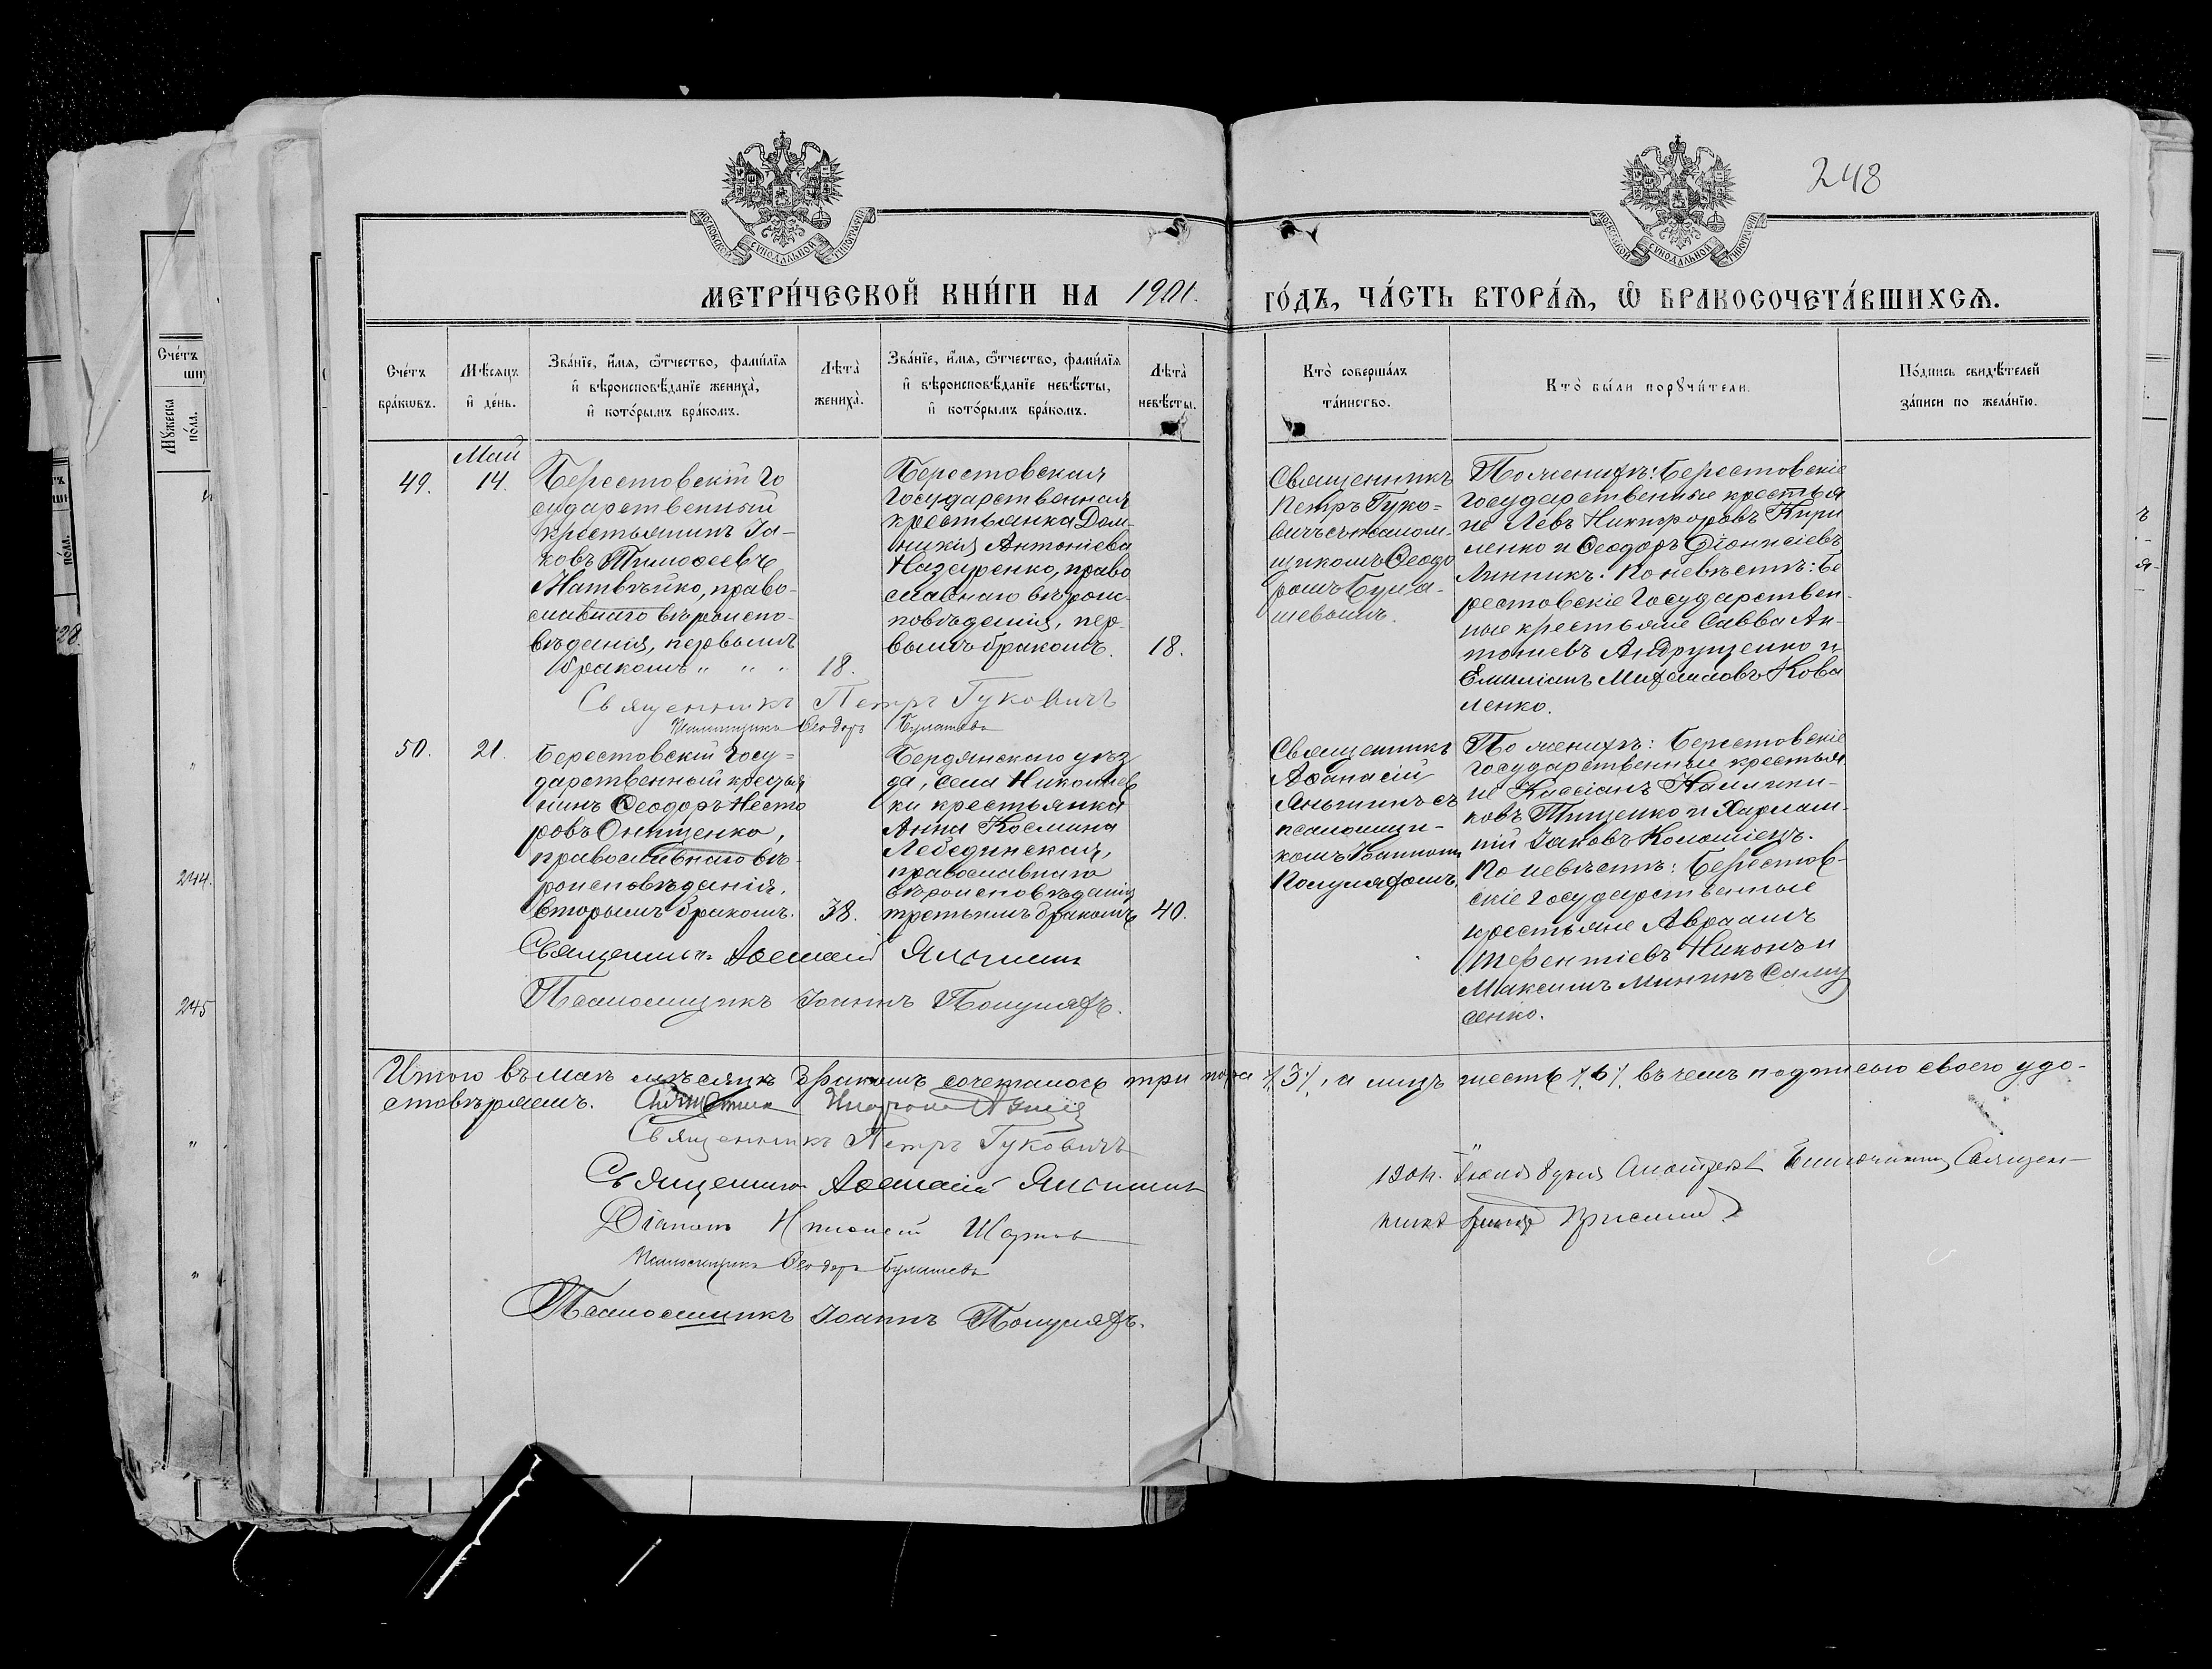 248
МОСКОВСКОЙ СѴНОДАЛЬНОЙ ТИПОГРАФІИ
МОСКОВСКОЙ СѴНОДАЛЬНОЙ ТИПОГРАФІИ
МЕТРИ́ЧЕСКОЙ КНИ́ГИ НА 1901. ГО́ДЪ, ЧА́СТЬ ВТОРА́Ѧ, Ѡ҆ БРАКОСОЧЕТА́ВШИХСѦ.
Сче́тъ
бра́кѡвъ.
Мѣ́сѧцъ
и҆ де́нь.
Зва́нїе, и҆́мѧ, ѻ҆́тчество, фами́лїѧ
и҆ вѣроисповѣ́данїе жениха̀,
и҆ кото́рымъ бра́комъ.
Лѣта̀
жениха̀.
Зва́нїе, и҆́мѧ, ѻ҆́тчество, фами́лїѧ
и҆ вѣроисповѣ́данїе невѣ́сты,
и҆ кото́рымъ бра́комъ.
Лѣта̀
невѣ́сты.
Кто̀ соверша́лъ
та́инство.
Кто̀ бы́ли порꙋчи́тели.
По́дпись свидѣ́телей
за́писи по жела́нїю.
49.
Май
14.
Берестовскій Го
сударственный
крестьянинъ Іа-
ковъ Тимоѳеевъ
Матвѣйко, право-
славнаго вѣроиспо-
вѣданія, первымъ
бракомъ " " "
18.
Берестовская
Государственная
крестьянка Дом-
никія Антоніева
Назаренко, право
славнаго вѣроис-
повѣданія, пер-
вымъ бракомъ.
18.
Священникъ
Петръ Гуко-
вичъ съ псалом-
щикомъ Ѳеодо
ромъ Булa-
шевымъ.
По женихѣ: Берестовскіе
Государственные крестья
не Левъ Никифоровъ Кири
ленко и Ѳеодоръ Діонисіевъ
Линникъ. По невѣстѣ: Бе
рестовскіе Государствен-
ные крестьяне Савва Ан-
тоніевъ Андрущенко и
Емиліанъ Михаиловъ Кова
ленко.
Священникъ Петръ Гуковичъ
Псаломщикъ Ѳеодоръ Булашевъ
50.
21.
Берестовскій Госу-
дарственный крестья
нинъ Ѳеодоръ Несто
ровъ Онищенко,
православнаго вѣ-
роисповѣданія,
вторымъ бракомъ.
38.
Бердянскаго уѣз
да, села Николаев
ки крестьянка
Анна Космина
Лебединская,
православнаго
вѣроисповѣданія
третьимъ бракомъ
40.
Священникъ
Аѳанасій
Яньшинъ съ
псаломщи-
комъ Іоанномъ
Полуляхомъ.
По женихѣ: Берестовскіе
Государственные крестья
не Кассіанъ Каллини-
ковъ Тищенко и Харлам-
пій Іаковъ Коломіецъ.
По невѣстѣ: Берестов-
скіе Государственные
крестьяне Авраамъ
Терентіевъ Никонъ и
Максимъ Мининъ Саму
сенко.
Священникъ Аѳанасій Яньшинъ
Псаломщикъ Іоаннъ Полуляхъ.
Итого въ маѣ мѣсяцѣ бракомъ сочеталось три пара /3/, а лицъ шесть /6/, въ чемъ подписью своею удо-
стовѣряемъ.
Священникъ Петръ Гуковичъ
Священникъ Аѳанасій Яньшинъ
Діаконъ
Псаломщикъ Ѳеодоръ Булашевъ
Псаломщикъ Іоаннъ Полуляхъ.
Священ-
никъ
Сче́тъ
Мꙋ́жеска
по́ла.
244.
245